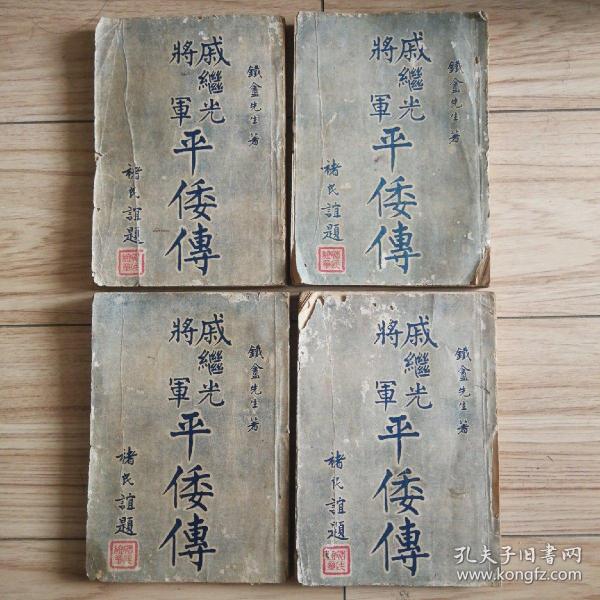 鐵盦先生著
戚繼光
將軍
平倭傳
褚民誼題
鐵盦先生著
戚繼光
將軍
平倭傳
褚民誼題
鐵盦先生著
戚繼光
將軍
平倭傳
褚民誼題
鐵盦先生著
戚繼光
將軍
平倭傳
褚民誼題
孔夫子旧書网
www.kongfz.com